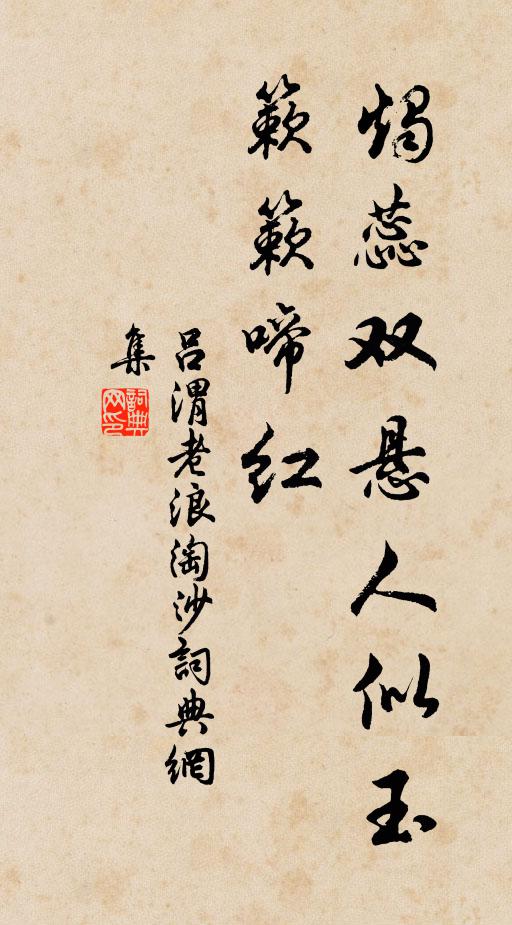 烛蕊双悬人似玉
簌簌啼红
吕渭老浪淘沙詞典網
集
詞典网印